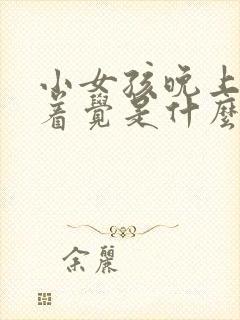 小女孩晚上
着覺是什麼
余麗